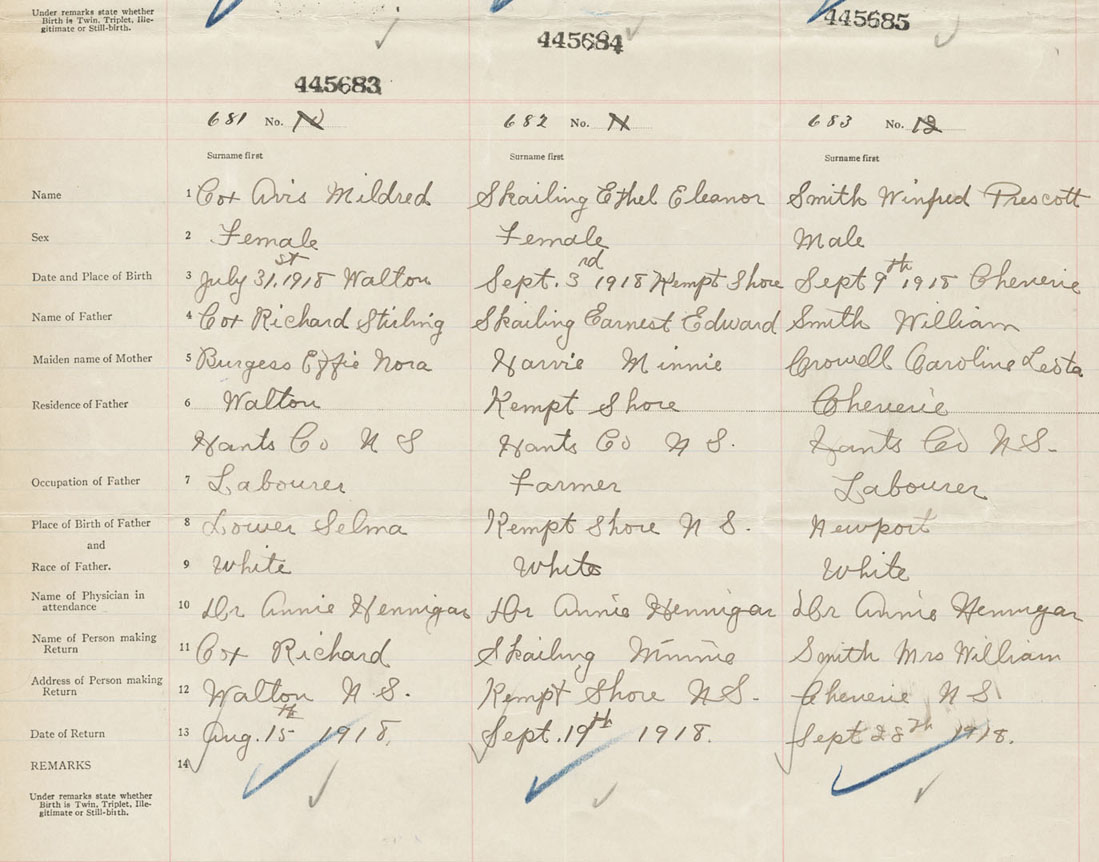 Under remarks state whether
Birth is Twin, Triplet, Ille-
gitimate or Still-birth.
445683 445684 445685
681 No. 682 No. 11 683 No. 12
Surname first Surname first Surname first
Name 1 Cox Avis Mildred Skailing Ethel Eleanor Smith Winfred Prescott
Sex 2 Female Female Male
Date and Place of Birth 3 July 31st, 1918 Walton Sept. 3rd 1918 Kempt Shore Sept 9th 1918 Cheverie
Name of Father 4 Cox Richard Stirling Skailing Earnest Edward Smith William
Maiden name of Mother 5 Burgess Effie Nora Harvie Minnie Crowell Caroline
Residence of Father 6 Walton Kempt Shore Cheverie
Hants Co N S Hants Co N S. Hants Co N S.
Occupation of Father 7 Labourer Farmer Labourer
Place of Birth of Father 8 Lower Selma Kempt Shore N S. Newport
and
Race of Father. 9 White White White
Name of Physician in
attendance 10 Dr Annie Hennigar Dr Annie Hennigar Dr Annie Hennigar
Name of Person making
Return 11 Cox Richard Skailing Minnie Smith Mrs William
Address of Person making
Return 12 Walton N.S. Kempt Shore N S. Cheverie N S
Date of Return 13 Aug. 15th 1918. Sept. 19th 1918. Sept 28th 1918.
REMARKS 14
Under remarks state whether
Birth is Twin, Triplet, Ille-
gitimate or Still-birth.